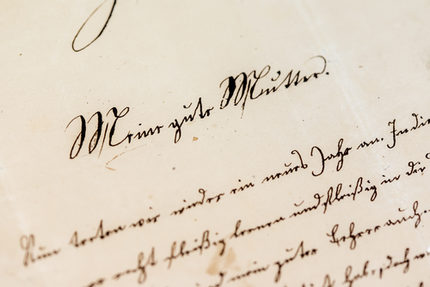 Meine gute Mutter.
Nun treten wir wieder ein neues Jahr an. In die
recht fleißig lernen und fleißig in der
mein guter Lehrer auch.
habe, doch